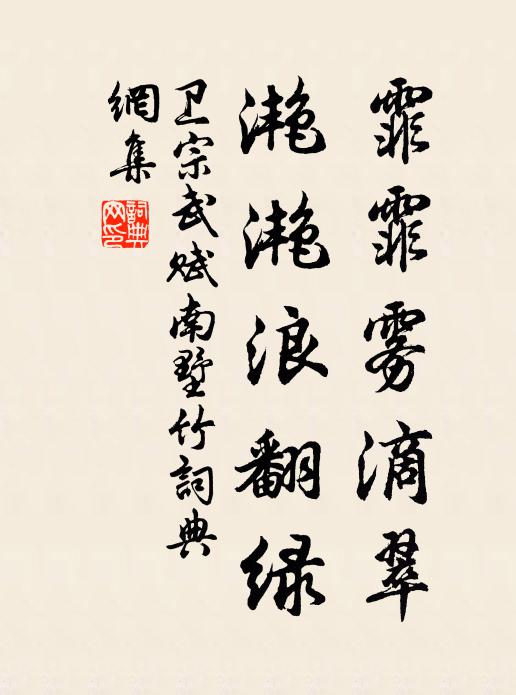 霏霏雾滴翠
滟滟浪翻绿
卫宗武赋南墅竹詞典
網集
詞典网印